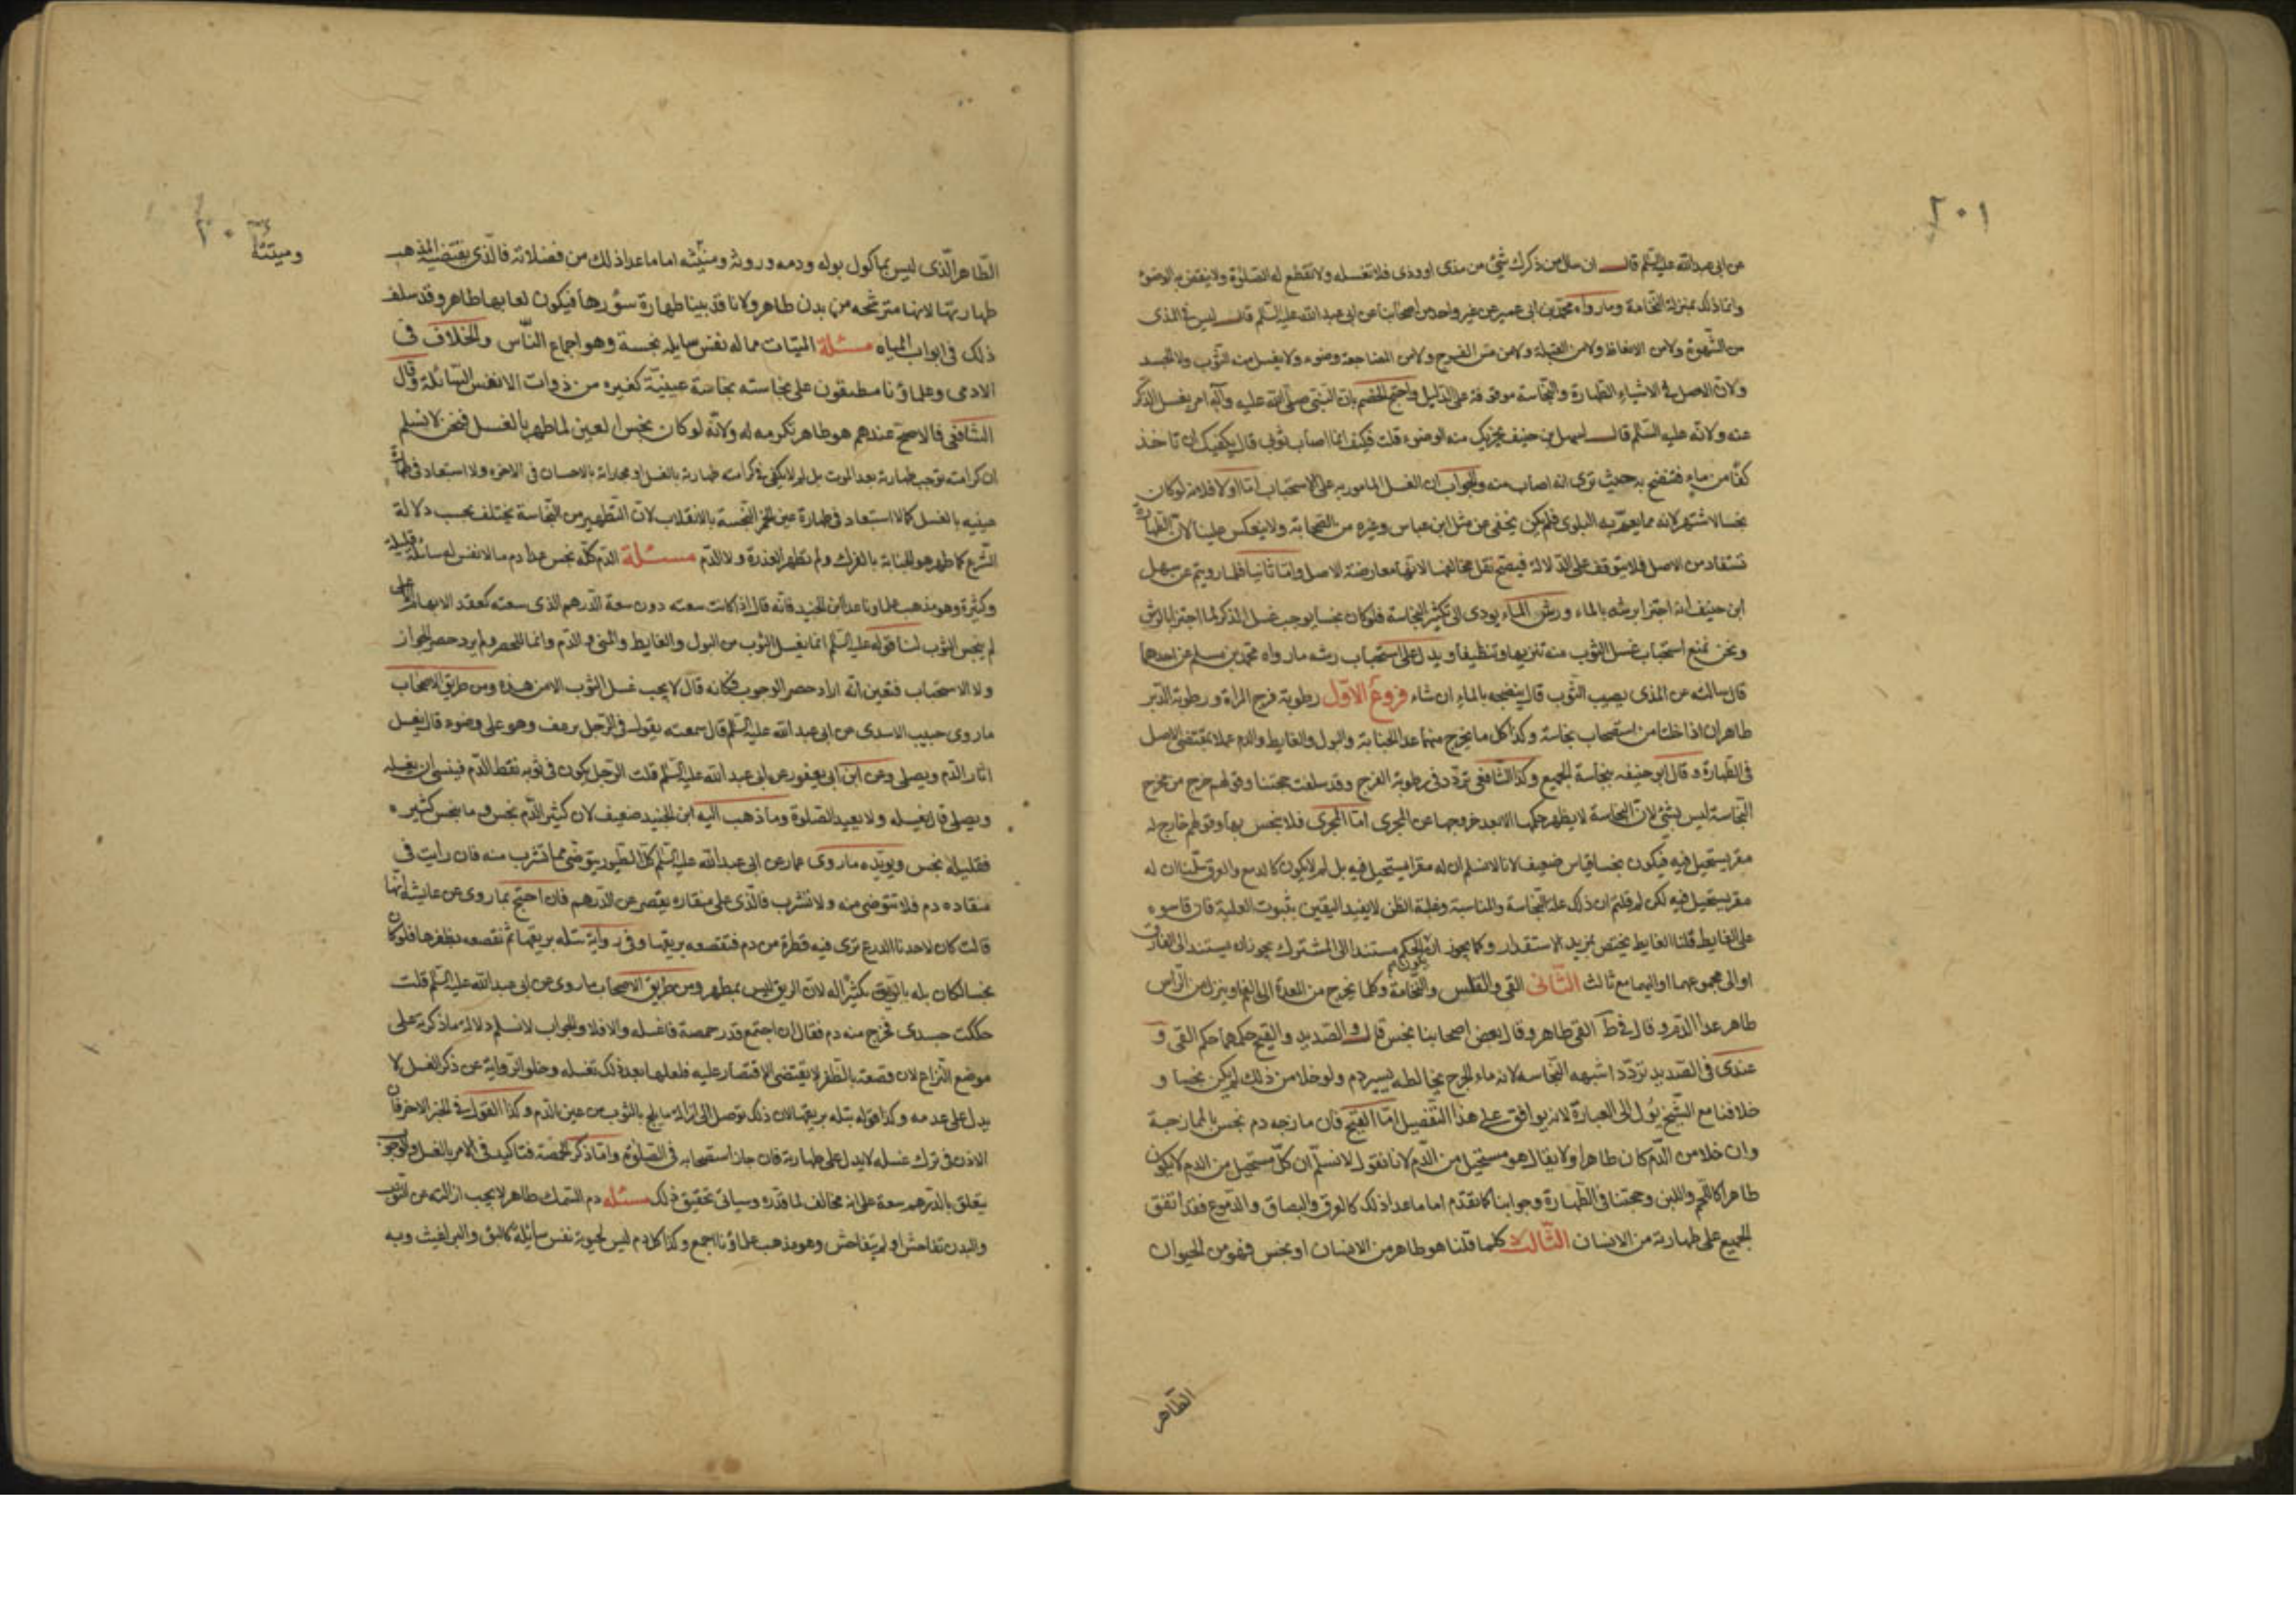 ٢٠١
عن ابى عبدالله عليه السلم قال ان سال من ذكرك شئ من مذى او ودى فلا تغسله ولا تقطع له الصلوة ولا ينقض به الوضوء
وانما ذلك بمنزلة النخامة وما رواه محمد بن ابى عمير عن غير واحد من اصحابنا عن ابى عبدالله عليه السلم قال ليس فى المذى
من الشهوة ولا من الانعاظ ولا من القبلة ولا من مس الفرج ولا من المضاجعة وضوء ولا يغسل منه الثوب ولا الجسد
ولان الاصل فى الاشياء الطهارة والنجاسة موقوفة على الدليل واحتج الخصم بان النبى صلى الله عليه وآله امر بغسل الذكر
عنه ولانه عليه السلم قال لسهل بن حنيف يجزيك منه الوضوء قلت فكيف بما اصاب ثوبى قال يكفيك ان تاخذ
كفا من ماء فتنضح به حيث ترى انه اصاب منه والجواب ان الغسل المامور به على الاستحباب اما اولا فلانه لو كان
نجسا لاشتهر لانه مما يعم به البلوى فلم يكن يخفى عن مثل ابن عباس وغيره من الصحابة ولا ينعكس علينا لان الطهارة
تستفاد من الاصل فلا يتوقف على الدلالة فيصح نقل مخالفها لانها معارضة الاصل واما ثانيا فلما رويتم عن سهل
ابن حنيف انه اجتزا برشه بالماء ورش الماء يودى الى تكثير النجاسة فلو كان نجسا يوجب غسل الذكر لما اجتزا بالرش
ونحن نمنع استحباب غسل الثوب منه تنزيها وتنظيفا ويدل على استحباب رشه ما رواه محمد بن مسلم عن احدهما
قال سالته عن المذى يصيب الثوب قال ينضحه بالماء ان شاء فروع الاول رطوبة فرج المراة ورطوبة الدبر
طاهران اذا خلتا من استصحاب نجاسة وكذا كل ما يخرج منهما عدا الجنابة والبول والغايط والدم عملا بمقتضى الاصل
فى الطهارة وقال ابو حنيفه بنجاسة الجميع وكذا الشافعى تردد فى رطوبة الفرج وقد سلفت حجتنا وقولهم خرج من مخرج
النجاسة ليس بشئ لان النجاسة لا يظهر حكمها الا بعد خروجها عن المجرى اما المجرى فلا ينجس بها وقولهم خارج له
مقر يستحيل فيه فيكون نجسا قياس ضعيف لانا لا نسلم ان له مقرا يستحيل فيه بل لم لا يكون كالدمع والعرق سلمنا ان له
مقر يستحيل فيه لكن لم قلتم ان ذلك علة النجاسة والمناسبة وغلبة الظن لا يفيد اليقين بثبوت العلية فان قاسوه
على الغايط قلنا الغايط يختص بمزيد الاستقذار وكما يجوز ان يكون الحكم مستندا الى المشترك يجوز ان يستند الى الفارق
او الى مجموعهما او اليهما مع ثالث الثانى القى والقلس والنخامة وكلما يخرج من المعدة الى الفم او ينزل من الراس
طاهر عدا الدم وقال فى ط القى طاهر وقال بعض اصحابنا نجس قال والصديد والقيح حكمهما حكم القى و
عندى فى الصديد تردد اشبهه النجاسة لانه ماء الجرح يخالطه يسير دم ولو خلا من ذلك لم يكن نجسا و
خلافنا مع الشيخ يؤل الى العبارة لانه يوافق على هذا التفصيل اما القيح فان مازجه دم نجس بالممازجة
وان خلا من الدم كان طاهرا ولا يقال هو مستحيل من الدم لانا نقول لا نسلم ان كل مستحيل من الدم لا يكون
طاهرا كاللحم واللبن وحجتنا فى الطهارة وجوابنا كما تقدم اما ما عدا ذلك كالعرق والبصاق والدموع فقد اتفق
الجميع على طهارته من الانسان الثالث كلما قلنا هو طاهر من الانسان او نجس فهو من الحيوان
الطاهر
٢٠٣
وميتته
الطاهر الذى ليس بماكول بوله ودمه وروثه ومنيه اما ما عدا ذلك من فضلاته فالذى يقتضيه المذهب
طهارتها لانها مترشحه من بدن طاهر ولانا قد بينا طهارة سؤرها فيكون لعابها طاهر وقد سلف
ذلك فى ابواب المياه مسئلة الميتات مما له نفس سايله نجسة وهو اجماع الناس والخلاف فى
الادمى وعلماؤنا مطبقون على نجاسته نجاسة عينية كغيره من ذوات الانفس السائلة وقال
الشافعى فالاصح عندهم هو طاهر تكرمه له ولانه لو كان نجس العين لما طهر بالغسل فنحن لا نسلم
ان كرامته توجب طهارته بعد الموت بل لم لا يكفى فى كرامته طهارته بالغسل او مجازاته بالاحسان فى الاخره ولا استبعاد فى طهارة
عينيه بالغسل كما لا استبعاد فى طهارة عين الخمر النجسة بالانقلاب لان التطهير من النجاسة يختلف بحسب دلالة
الشرع كما طهر هو الجنابة بالفرك ولم تطهر العذرة ولا الدم مسئلة الدم كله نجس عدا دم ما لا نفس له سائلة قليله
وكثيرة وهو مذهب علماونا عدا ابن الجنيد فانه قال اذا كانت سعته دون سعة الدرهم الذى سعته كعقد الابهام الاعلى
لم ينجس الثوب لنا قوله عليه السلم انما يغسل الثوب من البول والغايط والمنى والدم وانما للحصر ولم يرد حصر الجواز
ولا الاستحباب فتعين انه اراد حصر الوجوب فكانه قال لا يجب غسل الثوب الا من هذه ومن طريق الاصحاب
ما روى حبيب الاسدى عن ابى عبدالله عليه السلم قال سمعته يقول فى الرجل يرعف وهو على وضوء قال يغسل
اثار الدم ويصلى وعن ابن ابى يعفور عن ابى عبدالله عليه السلم قلت الرجل يكون فى ثوبه نقط الدم فينسى ان يغسله
ويصلى قال يغسله ولا يعيد الصلوة وما ذهب اليه ابن الجنيد ضعيف لان كثير الدم نجس وما ينجس كثيره
فقليله نجس ويويده ما روى عمار عن ابى عبدالله عليه السلم كل الطيور يتوضى مما تشرب منه فان رايت فى
منقاده دم فلا تتوضى منه ولا تشرب فالذى على منقاره يقصر عن الدرهم فان احتج بما روى عن عايشه انها
قالت كان لاحدنا الدرع ترى فيه قطرة من دم فتقصعه بريقها وفى رواية تبله بريقها ثم تقصعه بظفرها فلو كان
نجسا لكان بله بالريق تكثيرا له لان الريق ليس بمطهر ومن طريق الاصحاب ما روى عن ابى عبدالله عليه السلم قلت
حككت جسدى فخرج منه دم فقال ان اجتمع قدر حمصة فاغسله والا فلا والجواب لا نسلم دلالة ما ذكرته على
موضع النزاع لان قصعته بالظفر لا يقتضى الاقتصار عليه فلعلها بعد ذلك تغسله وخلو الرواية عن ذكر الغسل لا
يدل على عدمه وكذا قوله تبله بريقها لان ذلك توصل الى ازالة ما يلج بالثوب من عين الدم وكذا القول فى الخبر الاخر فان
الاذن فى ترك غسله لا يدل على طهارته فان جاز استصحابه فى الصلوة واما ذكر الحمصة فتاكيد فى الامر بالغسل والوجوب
يتعلق بالدرهم سعة على انه مخالف لما قدره وسياتى تحقيق ذلك مسئله دم السمك طاهر لا يجب ازالته عن الثوب
والبدن تفاحش او لم يتفاحش وهو مذهب علماؤنا اجمع وكذا كل دم ليس لحيوانه نفس سائلة كالبق والبراغيث وبه